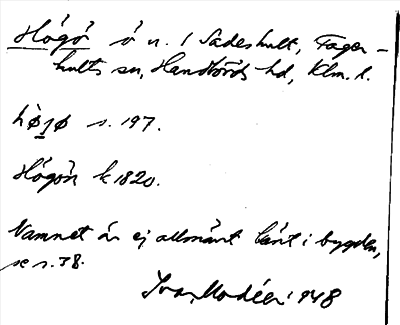 Högö ö n. i Sadeshult, Fager-
hults sn, Handbörds hd, Klm. l.
hø̀1ø s. 197.
Högön k 1820.
Namnet är ej allmänt känt i bygden,
se s. 38.
Ivar Modéer 1948